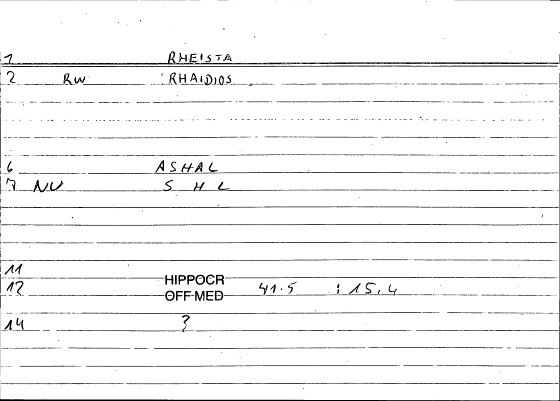 1 RHEISTA
2 RW RHAIDIOS
6 ASHAL
7 NU S H L
11
12 HIPPOCR OFF MED 41.5 : 15,4
14 ?